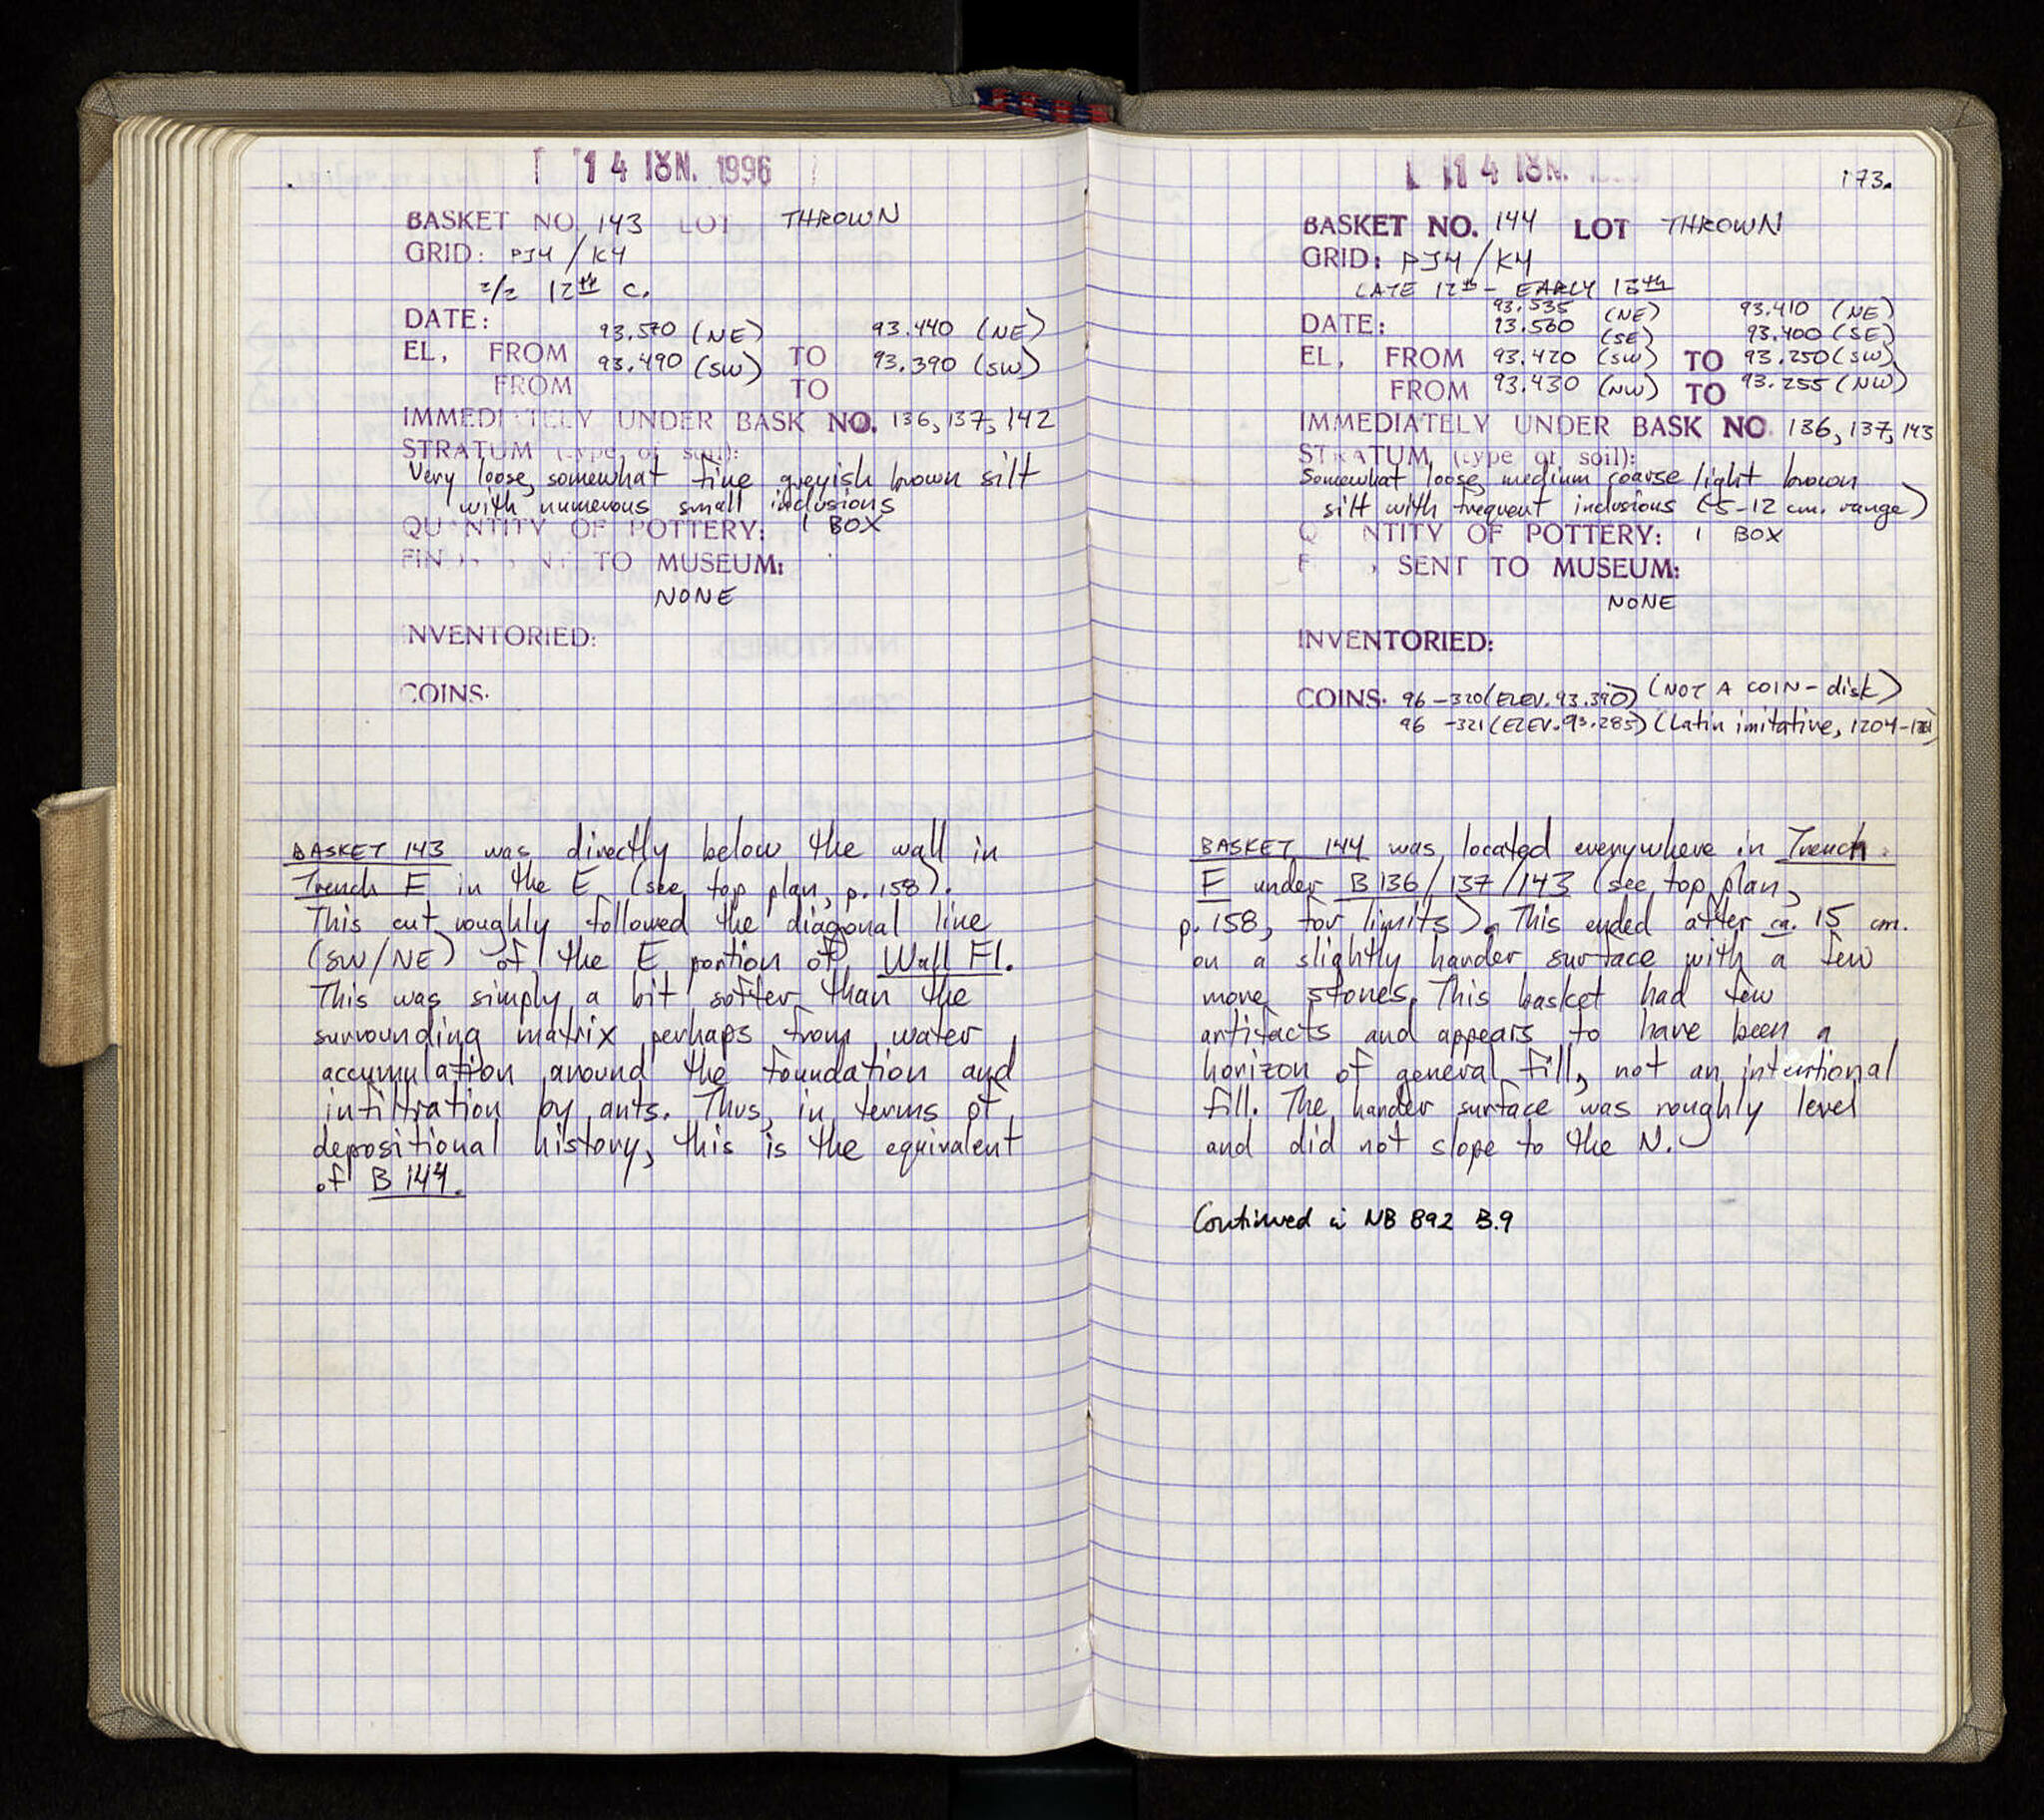 14 ΙΟΥΝ. 1996
BASKET NO. 143 LOT THROWN
GRID: PJ4 / K4
2/2 12th c.
DATE:
93.570 (NE) 93.440 (NE)
EL, FROM 93.490 (SW) TO 93.390 (SW)
FROM TO
IMMEDIATELY UNDER BASK NO. 136, 137, 142
STRATUM (type of soil):
Very loose, somewhat fine greyish brown silt
with numerous small inclusions
QUANTITY OF POTTERY: 1 BOX
TO MUSEUM:
NONE
INVENTORIED:
COINS.
BASKET 143 was directly below the wall in
Trench E in the E (see top plan, p. 158).
This cut roughly followed the diagonal line
(SW/NE) of the E portion of Wall F1.
This was simply a bit softer than the
surrounding matrix perhaps from water
accumulation around the foundation and
infiltration by ants. Thus, in terms of
depositional history, this is the equivalent
of B 144.
14 ΙΟΥΝ.
173.
BASKET NO. 144 LOT THROWN
GRID: PJ4 / K4
LATE 12th - EARLY 13th
93.535 (NE) 93.410 (NE)
DATE: 93.560 (SE) 93.400 (SE)
EL, FROM 93.420 (SW) TO 93.250 (SW)
FROM 93.430 (NW) TO 93.255 (NW)
IMMEDIATELY UNDER BASK NO. 136, 137, 143
STRATUM (type of soil):
Somewhat loose, medium coarse light brown
silt with frequent inclusions (5-12 cm. range)
QUANTITY OF POTTERY: 1 BOX
SENT TO MUSEUM:
NONE
INVENTORIED:
COINS. 96-320 (ELEV. 93.390) (NOT A COIN - disk)
96-321 (ELEV. 93.285) (Latin imitative, 1204-
BASKET 144 was located everywhere in Trench
E under B 136/137/143 (see top plan,
p. 158, for limits). This ended after ca. 15 cm.
on a slightly harder surface with a few
more stones. This basket had few
artifacts and appears to have been a
horizon of general fill, not an intentional
fill. The harder surface was roughly level
and did not slope to the N.
Continued in NB 892 B.9